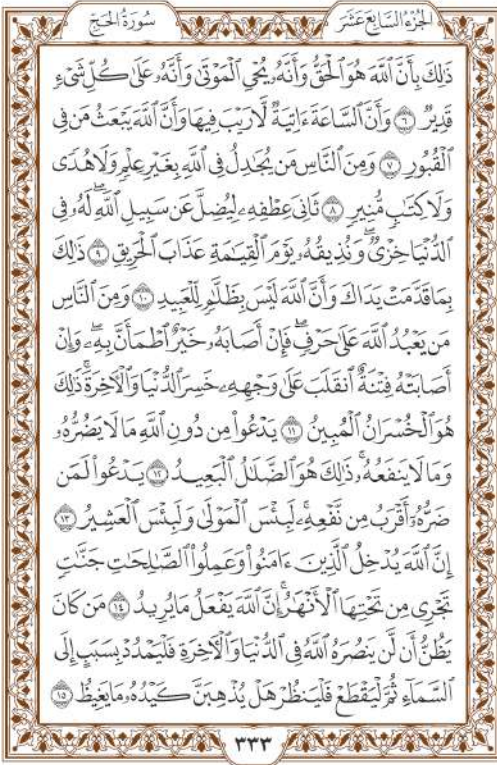 الجُزْءُ السَّابِعَ عَشَرَ
سُورَةُ الحَجّ
ذَٰلِكَ بِأَنَّ ٱللَّهَ هُوَ ٱلْحَقُّ وَأَنَّهُۥ يُحْىِ ٱلْمَوْتَىٰ وَأَنَّهُۥ عَلَىٰ كُلِّ شَىْءٍ
قَدِيرٌ ٦ وَأَنَّ ٱلسَّاعَةَ ءَاتِيَةٌ لَّا رَيْبَ فِيهَا وَأَنَّ ٱللَّهَ يَبْعَثُ مَن فِى
ٱلْقُبُورِ ٧ وَمِنَ ٱلنَّاسِ مَن يُجَٰدِلُ فِى ٱللَّهِ بِغَيْرِ عِلْمٍ وَلَا هُدًى
وَلَا كِتَٰبٍ مُّنِيرٍ ٨ ثَانِىَ عِطْفِهِۦ لِيُضِلَّ عَن سَبِيلِ ٱللَّهِۖ لَهُۥ فِى
ٱلدُّنْيَا خِزْىٌۖ وَنُذِيقُهُۥ يَوْمَ ٱلْقِيَٰمَةِ عَذَابَ ٱلْحَرِيقِ ٩ ذَٰلِكَ
بِمَا قَدَّمَتْ يَدَاكَ وَأَنَّ ٱللَّهَ لَيْسَ بِظَلَّٰمٍ لِّلْعَبِيدِ ١٠ وَمِنَ ٱلنَّاسِ
مَن يَعْبُدُ ٱللَّهَ عَلَىٰ حَرْفٍۖ فَإِنْ أَصَابَهُۥ خَيْرٌ ٱطْمَأَنَّ بِهِۦۖ وَإِنْ
أَصَابَتْهُ فِتْنَةٌ ٱنقَلَبَ عَلَىٰ وَجْهِهِۦ خَسِرَ ٱلدُّنْيَا وَٱلْءَاخِرَةَۚ ذَٰلِكَ
هُوَ ٱلْخُسْرَانُ ٱلْمُبِينُ ١١ يَدْعُوا۟ مِن دُونِ ٱللَّهِ مَا لَا يَضُرُّهُۥ
وَمَا لَا يَنفَعُهُۥۚ ذَٰلِكَ هُوَ ٱلضَّلَٰلُ ٱلْبَعِيدُ ١٢ يَدْعُوا۟ لَمَن
ضَرُّهُۥٓ أَقْرَبُ مِن نَّفْعِهِۦۚ لَبِئْسَ ٱلْمَوْلَىٰ وَلَبِئْسَ ٱلْعَشِيرُ ١٣
إِنَّ ٱللَّهَ يُدْخِلُ ٱلَّذِينَ ءَامَنُوا۟ وَعَمِلُوا۟ ٱلصَّٰلِحَٰتِ جَنَّٰتٍ
تَجْرِى مِن تَحْتِهَا ٱلْأَنْهَٰرُۚ إِنَّ ٱللَّهَ يَفْعَلُ مَا يُرِيدُ ١٤ مَن كَانَ
يَظُنُّ أَن لَّن يَنصُرَهُ ٱللَّهُ فِى ٱلدُّنْيَا وَٱلْءَاخِرَةِ فَلْيَمْدُدْ بِسَبَبٍ إِلَى
ٱلسَّمَآءِ ثُمَّ لْيَقْطَعْ فَلْيَنظُرْ هَلْ يُذْهِبَنَّ كَيْدُهُۥ مَا يَغِيظُ ١٥
٣٣٣